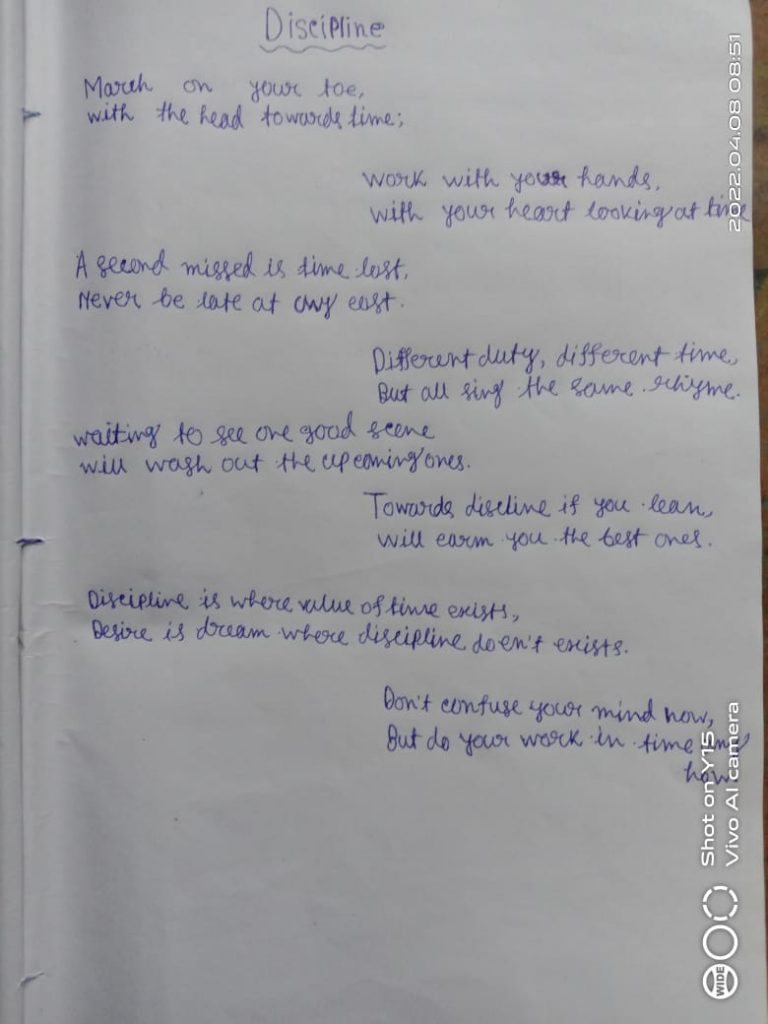 Discipline
March on your toe,
with the head towards time;
work with your hands,
with your heart looking at time
A second missed is time lost,
Never be late at any cost.
Different duty, different time,
But all sing the same rhyme.
waiting to see one good scene
will wash out the upcoming ones.
Towards discline if you lean,
will earm you the best ones.
Discipline is where value of time exists,
Desire is dream where discipline doen't exists.
Don't confuse your mind now,
But do your work in time any
how.
2022.04.08 08:51
Shot on Y15
Vivo AI camera
WIDE